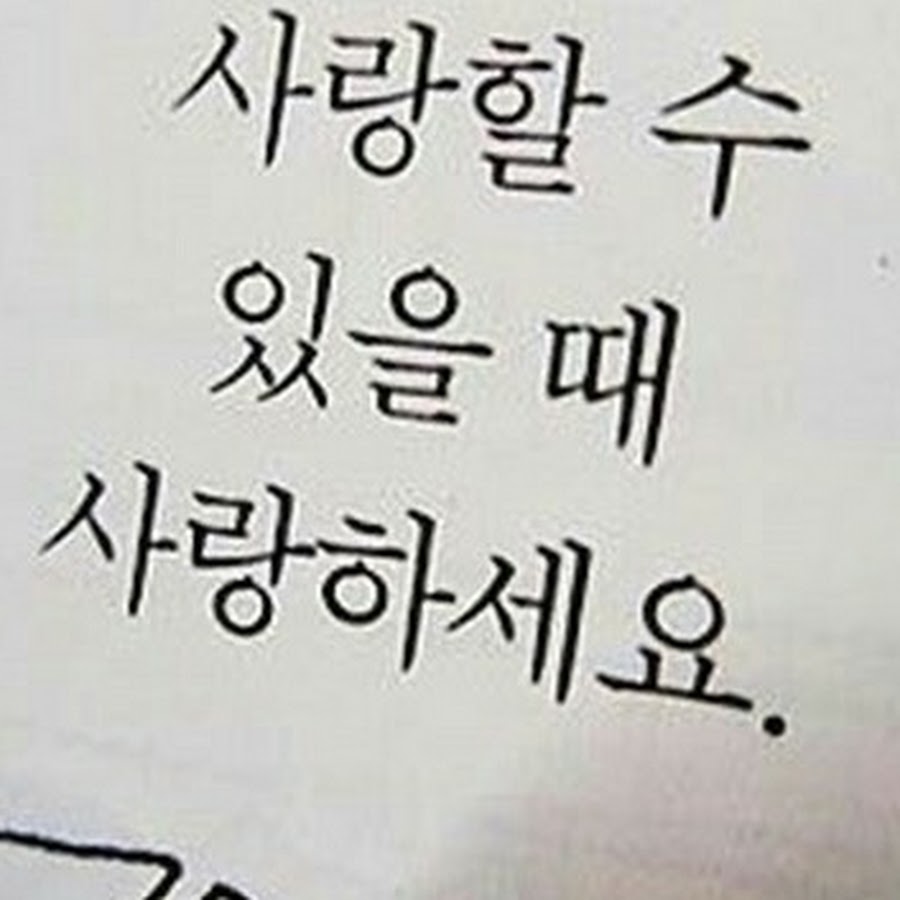 사랑할 수
있을 때
사랑하세요.